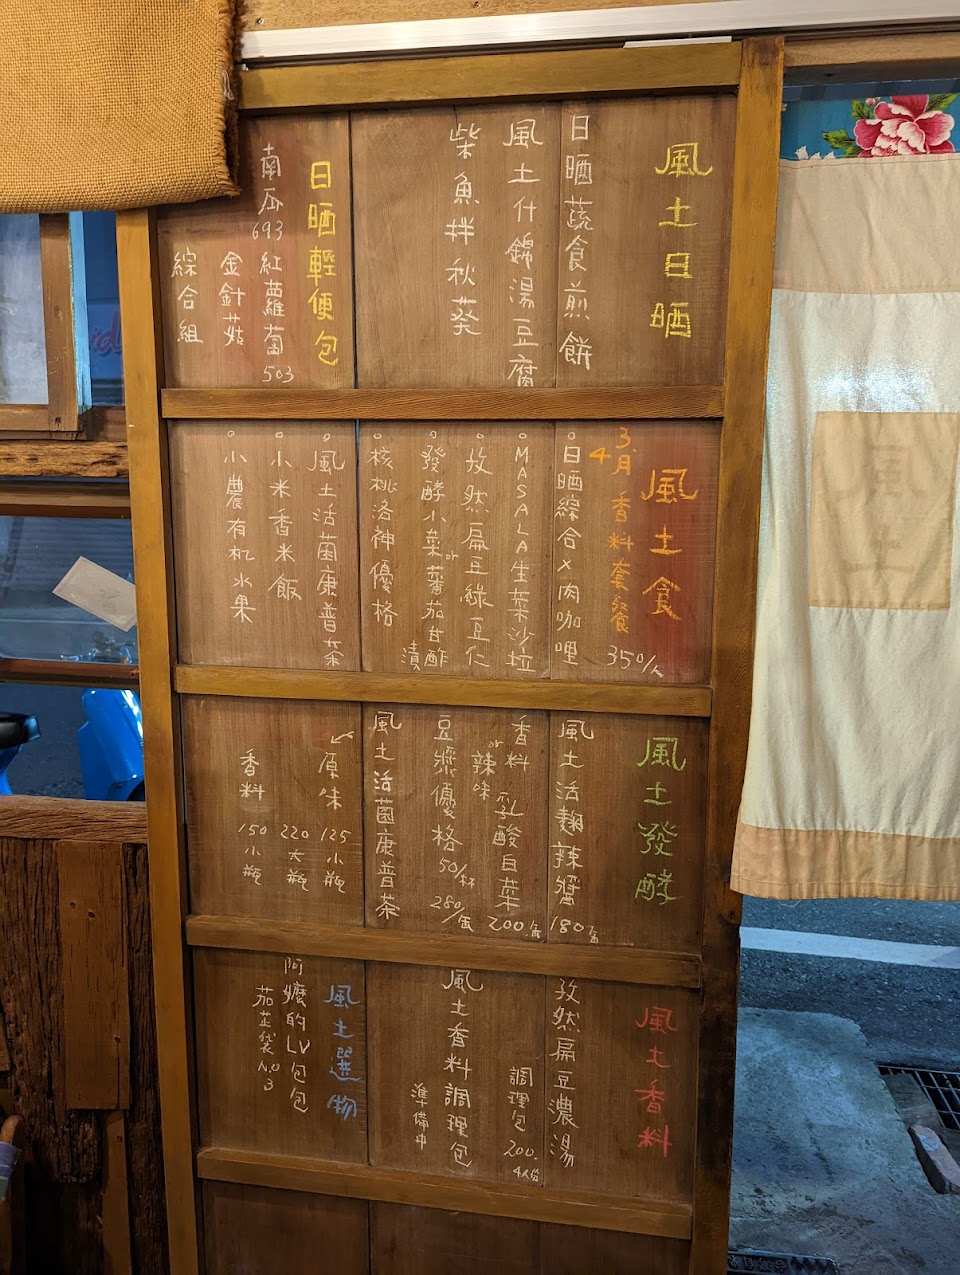 風土日晒
日晒蔬食煎餅
風土什錦湯豆腐
柴魚拌秋葵
日晒輕便包
南瓜693
紅蘿蔔503
金針菇
綜合組
風土食
3.4月香料套餐
350/人
。日晒綜合×肉咖哩
。MASALA生菜沙拉
。孜然扁豆綠豆仁
。發酵小菜or蕃茄甘酢漬
。核桃洛神優格
。風土活菌康普茶
。小米香米飯
。小農有机水果
風土發酵
風土活麴辣醬180/缶
香料or辣味 乳酸白菜200/缶
豆漿優格50/杯 280/缶
風土活菌康普茶
原味 125小瓶
220大瓶
香料 150小瓶
風土香料
孜然扁豆濃湯
調理包200.
4人份
風土香料調理包
準備中
風土選物
阿嬤的LV包包
茄芷袋NO3
風土